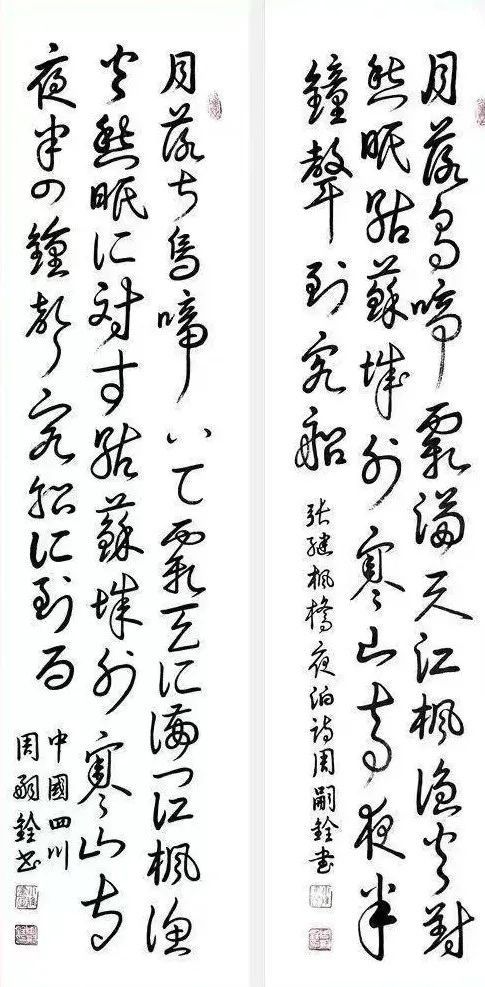 月落烏啼霜滿天江楓漁火對
愁眠姑蘇城外寒山寺夜半
鐘聲到客船
張继楓橋夜泊詩周嗣銓書
月落ち烏啼いて霜天に満つ江楓漁
火愁眠に対す姑蘇城外寒山寺
夜半の鐘声客船に到る
中國四川
周嗣銓書